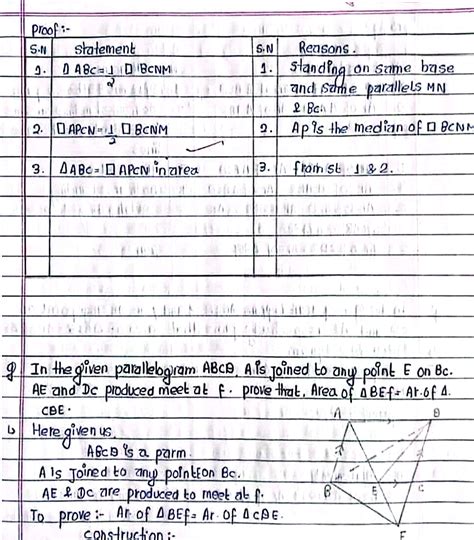 Proof :-
S.N Statement S.N Reasons.
1. Δ ABC = 1/2 □ BCNM 1. Standing on same base
and same parallels MN
& BC.
2. □ APCN = 1/2 □ BCNM 2. Ap is the median of □ BCNM
3. ΔABC = □ APCN in area 3. from st 1 & 2.
g In the given parallelogram ABCD, A is joined to any point E on BC.
AE and DC produced meet at f. prove that, Area of ΔBEf = Ar. of Δ
CDE.
Here given us,
ABCD is a parm.
A is Joined to any point E on BC.
AE & DC are produced to meet at f.
To prove :- Ar. of ΔBEf = Ar. of ΔCDE.
construction :-
A D
B E C
F